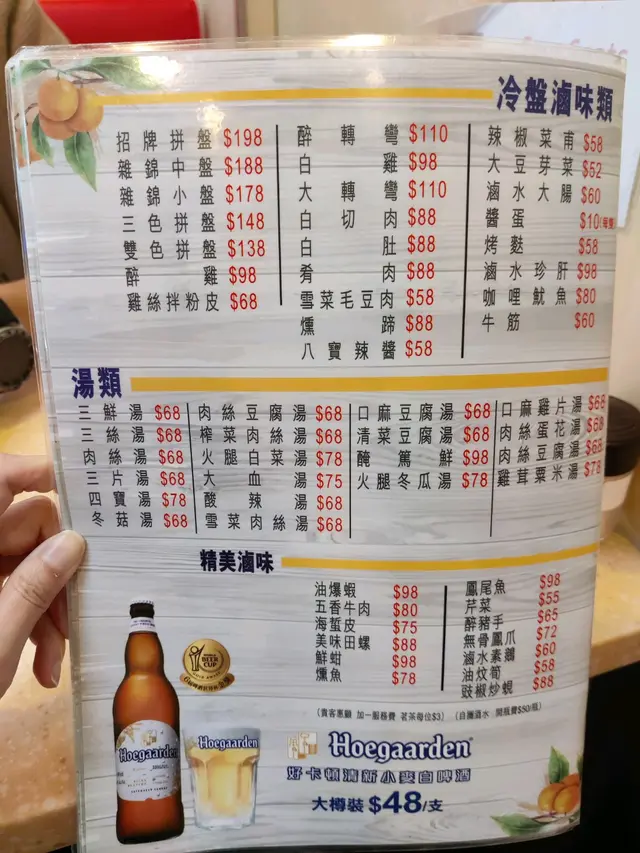 冷盤滷味類
招牌拼盤 $198
雜錦中盤 $188
雜錦小盤 $178
三色拼盤 $148
雙色拼盤 $138
醉雞 $98
雞絲拌粉皮 $68
醉轉彎 $110
白雞 $98
大轉彎 $110
白切肉 $88
白肚 $88
肴肉 $88
雪菜毛豆肉 $58
燻蹄 $88
八寶辣醬 $58
辣椒菜甫 $58
大豆芽菜 $52
滷水大腸 $60
醬蛋 $10(每隻)
烤麩 $58
滷水珍肝 $98
咖喱魷魚 $80
牛筋 $60
湯類
三鮮湯 $68
三絲湯 $68
肉絲湯 $68
三片湯 $68
四寶湯 $78
冬菇湯 $68
肉絲豆腐湯 $68
榨菜肉絲湯 $68
火腿白菜湯 $78
大血湯 $75
酸辣湯 $68
雪菜肉絲湯 $68
口麻豆腐湯 $68
清菜豆腐湯 $68
醃篤鮮 $98
火腿冬瓜湯 $78
口麻雞片湯 $68
肉絲蛋花湯 $68
肉絲豆腐湯 $68
雞茸粟米湯 $78
精美滷味
油爆蝦 $98
五香牛肉 $80
海蜇皮 $75
美味田螺 $88
鮮蚶 $98
燻魚 $78
鳳尾魚 $98
芹菜 $55
醉豬手 $65
無骨鳳爪 $72
滷水素鵝 $60
油炆筍 $58
豉椒炒蜆 $88
(貴客惠顧 加一服務費 茗茶每位$3) (自攜酒水 開瓶費$50/瓶)
BEER CUP
Hoegaarden
Hoegaarden
Hoegaarden
好卡頓清新小麥白啤酒
大樽裝 $48/支